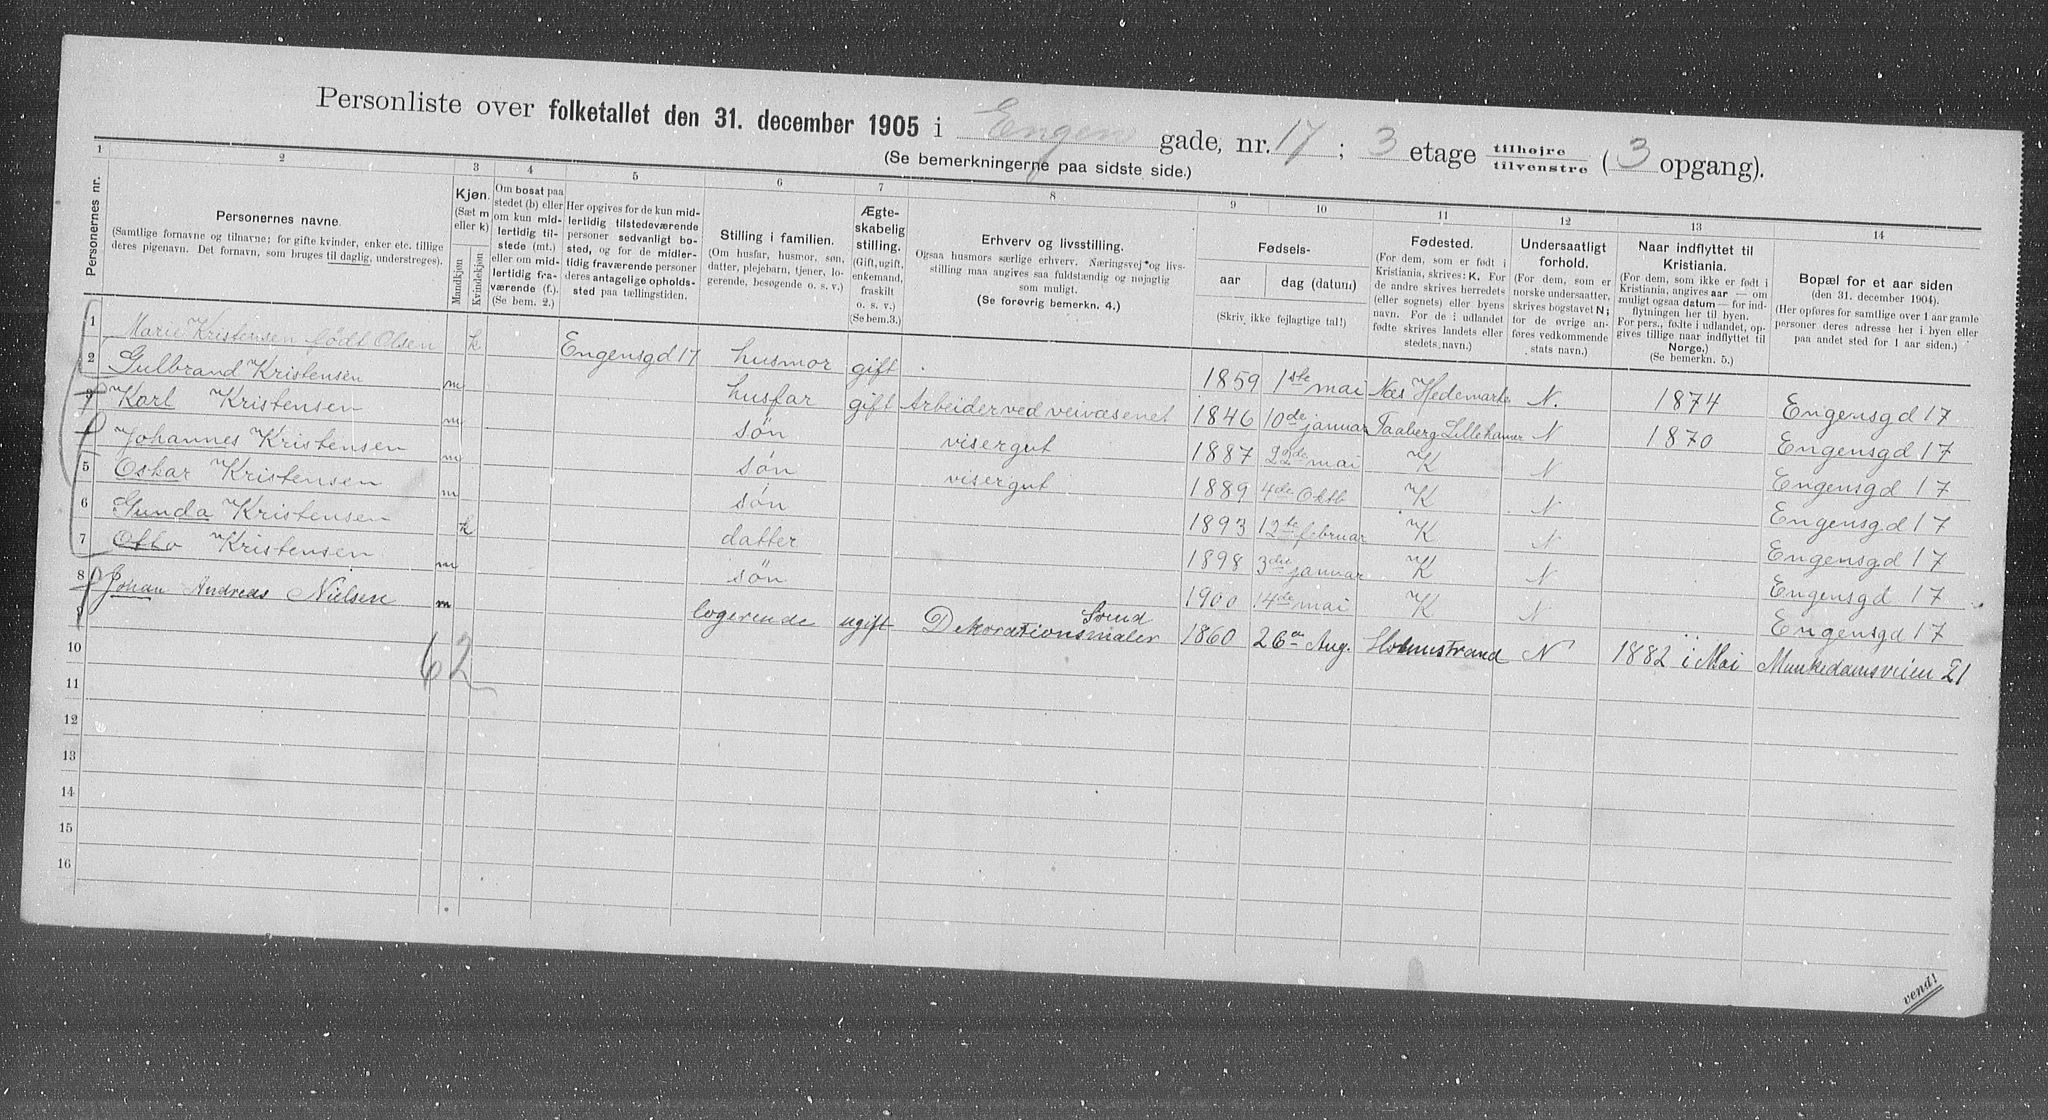 Personliste over folketallet den 31. december 1905 i Engens gade, nr. 17; 3 etage tilhøjre/tilvenstre (3 opgang).
(Se bemerkningerne paa sidste side.)
1 2 3 4 5 6 7 8 9 10 11 12 13 14
Personernes nr.
Personernes navne.
(Samtlige fornavne og tilnavne; for gifte kvinder, enker etc. tillige
deres pigenavn. Det fornavn, som bruges til daglig, understreges).
Kjøn.
(Sæt m
eller k)
Mandkjøn
Kvindekjøn
Om bosat paa
stedet (b) eller
om kun mid-
lertidig til-
stede (mt.)
eller om mid-
lertidig fra-
værende (f.)
(Se bem. 2.)
Her opgives for de kun mid-
lertidig tilstedeværende
personer sedvanligt bo-
sted, og for de midler-
tidig fraværende personer
deres antagelige opholds-
sted paa tællingstiden.
Stilling i familien.
(Om husfar, husmor, søn,
datter, plejebarn, tjener, lo-
gerende, besøgende o. s. v.)
Ægte-
skabelig
stilling.
(Gift, ugift,
enkemand,
fraskilt
o. s. v.)
(Se bem.3.)
Erhverv og livsstilling.
Ogsaa husmors særlige erhverv. Næringsvej og livs-
stilling maa angives saa fuldstændig og nøjagtig
som muligt.
(Se forøvrig bemerkn. 4.)
Fødsels-
aar
dag (datum)
(Skriv ikke fejlagtige tal!)
Fødested.
(For dem, som er født i
Kristiania, skrives: K. For
de andre skrives herredets
(eller sognets) eller byens
navn. For de i udlandet
fødte skrives landets eller
stedets navn.)
Undersaatligt
forhold.
(For dem, som er
norske undersaatter,
skrives bogstavet N;
for de øvrige an-
føres vedkommende
stats navn.)
Naar indflyttet til
Kristiania.
(For dem, som ikke er født i
Kristiania, angives aar — om
muligt ogsaa datum — for ind-
flytningen her til byen.
For pers., fødte i udlandet, op-
gives tillige naar indflyttet til
Norge.)
(Se bemerkn. 5.)
Bopæl for et aar siden
(den 31. december 1904).
(Her opføres for samtlige over 1 aar gamle
personer deres adresse her i byen eller
paa andet sted for 1 aar siden.)
1 Marie Kristensen født Olsen k Engensgd 17 husmor gift 1859 1ste mai Næs Hedemarken N. 1874 Engensgd 17
2 Gulbrand Kristensen m husfar gift Arbeider ved veivæsenet 1846 10de januar Faaberg Lillehamer N 1870 Engensgd 17
3 Karl Kristensen m søn visergut 1887 22de mai K N Engensgd 17
Johannes Kristensen m søn visergut 1889 4de Oktb K N Engensgd 17
5 Oskar Kristensen m søn 1893 12te februar K N Engensgd 17
6 Gunda Kristensen k datter 1898 3die januar K N Engensgd 17
7 Otto Kristensen m søn 1900 14de mai K N Engensgd 17
8 Johan Andreas Nielsen m logerende ugift Dekorationsmaler Svend 1860 26de Aug. Holmestrand N 1882 i Mai Munkedamsveien 21
9
62
10
11
12
13
14
15
16
vend!